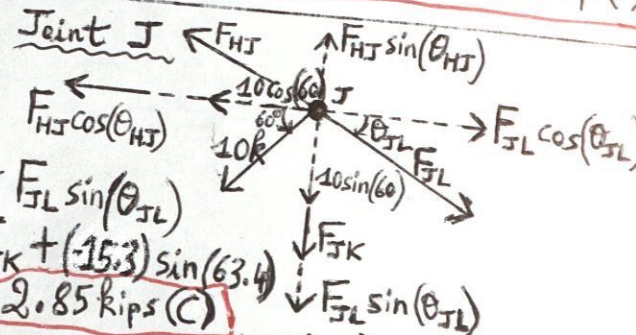 Joint J
F_HJ
F_HJ sin(θ_HJ)
10cos(60)
J
F_HJ cos(θ_HJ)
60°
10k
θ_JL
F_JL
F_JL cos(θ_JL)
F_JL sin(θ_JL)
10sin(60)
F_JK
+ (-15.3) sin(63.4)
2.85 kips (C)
F_JL sin(θ_JL)